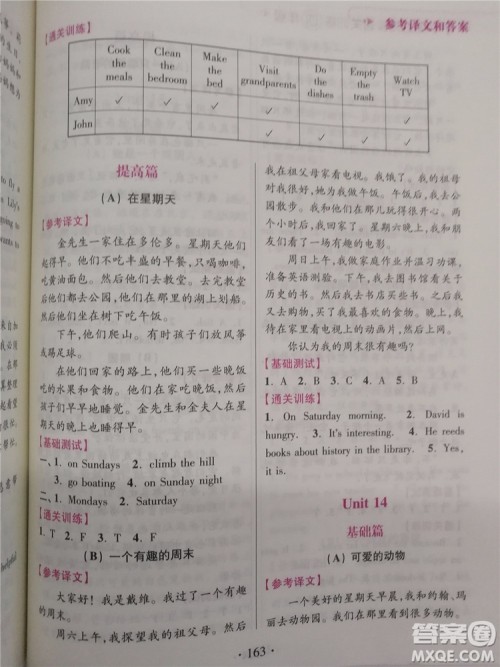 参考译文和答案
【通关训练】
Cook the meals Clean the bedroom Make the bed Visit grandparents Do the dishes Empty the trash Watch TV
Amy ✓ ✓ ✓ ✓
John ✓ ✓ ✓ ✓
提高篇
(A) 在星期天
【参考译文】
金先生一家住在多伦多。星期天他们
起得很晚。他们不吃丰盛的早餐，只喝咖啡，
吃黄油面包。然后他们去教堂。之后
他们去公园，他们在那里的湖上划船。然后
在树下吃午饭。
下午，他们爬山。有时孩子们放风筝
或踢足球。
在他们回家的路上，他们在吃晚饭
吃的水果和食物。他们在家吃晚饭，晚饭
后看书或玩牌。金先生和金夫人在星期
天的晚上也很早睡觉。
【基础测试】
一、1. on Sundays 2. climb the hill
3. go boating 4. fly kites
二、1. Mondays 2. Saturday
【通关训练】
1. T 2. F 3. T 4. F
(B) 一个有趣的周末
【参考译文】
大家好！我是戴维。
周六上午，我探望我的祖父母。
我在祖父母家看电视。我饿了。我的祖母
对我很好，她为我做午饭。午饭后，我去
公园散步。我和他们在那儿玩得开心。两
个小时后，我回家了。星期六晚上，我和
朋友们去看电影。我们看了一场有趣的电影。
周日上午，我做家庭作业并温习功课，
准备英语测验。下午，我去图书馆看关于
历史的书。然后我去书店买一些书。之后
又去购物。我买了一些食物。
我的星期天晚上是看有趣的动画片，
你认为我的周末很有趣吗？
【基础测试】
1. A 2. B 3. C 4. A 5. B
【通关训练】
1. On Saturday morning. 2. David is
hungry. 3. It's interesting. 4. He reeds
books about history in the library. 5. Yes,
it is.
Unit 14
基础篇
(A) 可爱的动物
【参考译文】
一个美好的星期天早上，我和约翰、玛
丽去动物园。我们在那里看到很多动物。
· 163 ·
答案圈